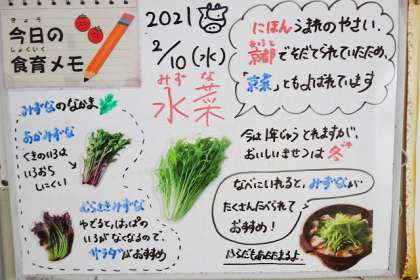 きょう
今日の
しょくいく
食育メモ
2021
2/10(水)
みず な
水菜
にほんうまれのやさい。
きょうと
京都でそだてられていたため、
「京菜」ともよばれています
みずなのなかま
あかみずな
くきのいろは
いろおち
しにくい!
むらさきみずな
ゆでると、はっぱの
いろがなくなるので、
サラダがおすすめ
今は1年じゅうとれますが、
おいしいきせつは冬
なべにいれると、みずなが
たくさんたべられて
おすすめ!
からだもあたたまるよ。